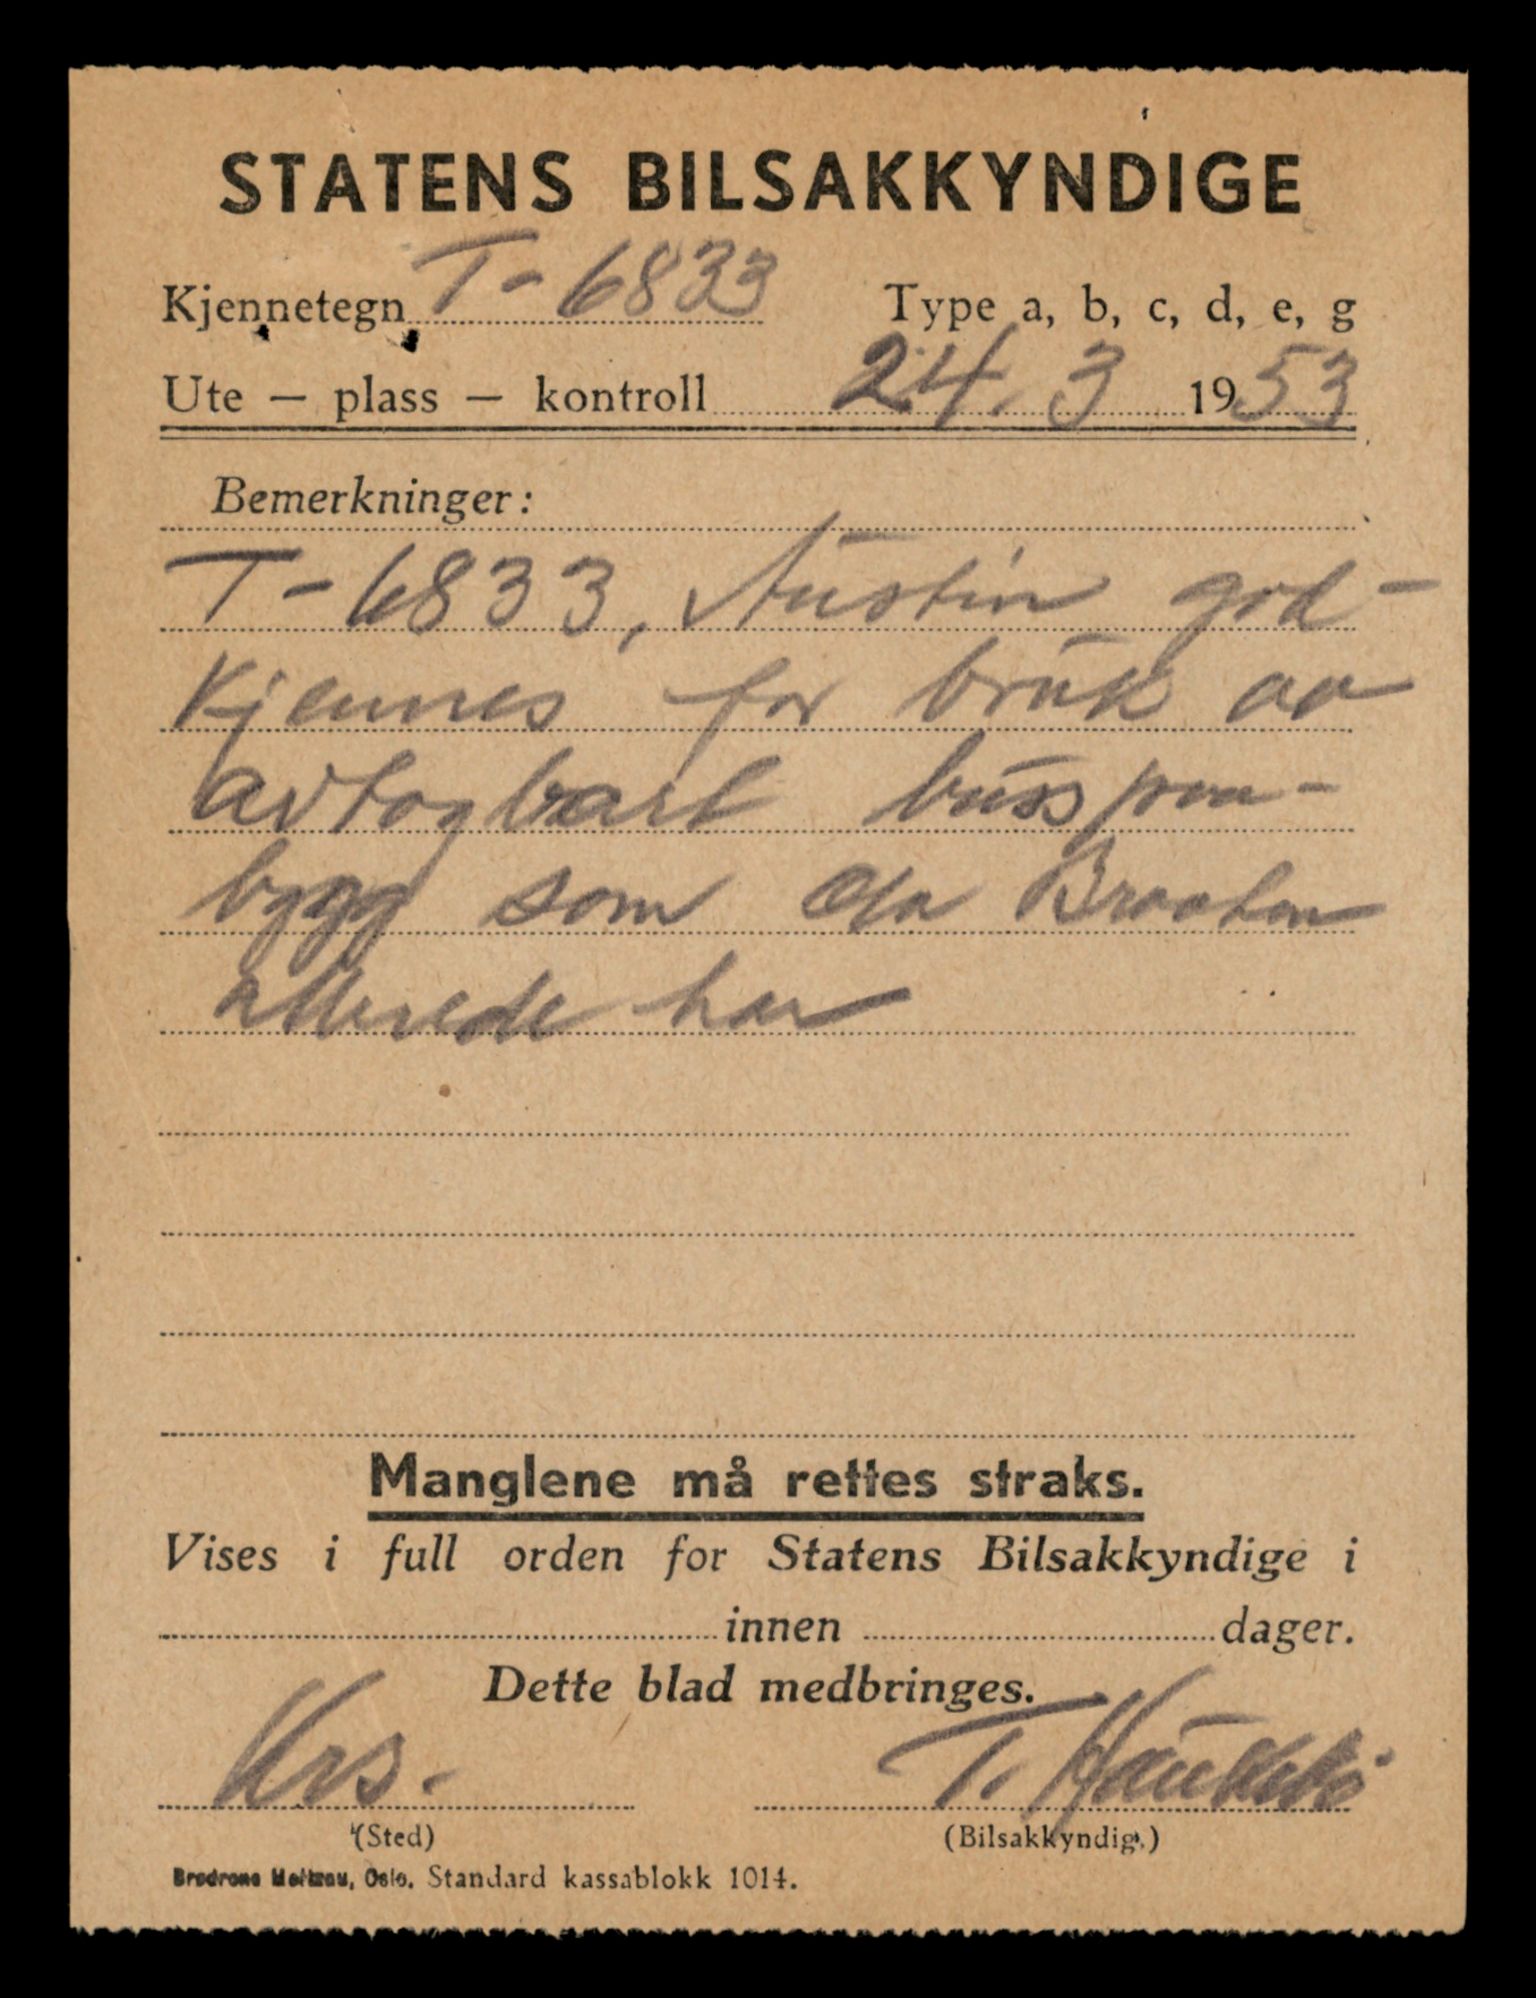 STATENS BILSAKKYNDIGE
Kjennetegn T-6833 Type a, b, c, d, e, g
Ute — plass — kontroll 24. 3 1953
Bemerkninger:
T-6833, Austin god-
kjennes for bruk av
avtagbart buss paa-
bygg som Ola Braaten
allerede har
Manglene må rettes straks.
Vises i full orden for Statens Bilsakkyndige i
innen dager.
Dette blad medbringes.
Krs. T.
(Sted) (Bilsakkyndig.)
Brødrene Oslo. Standard kassablokk 1014.